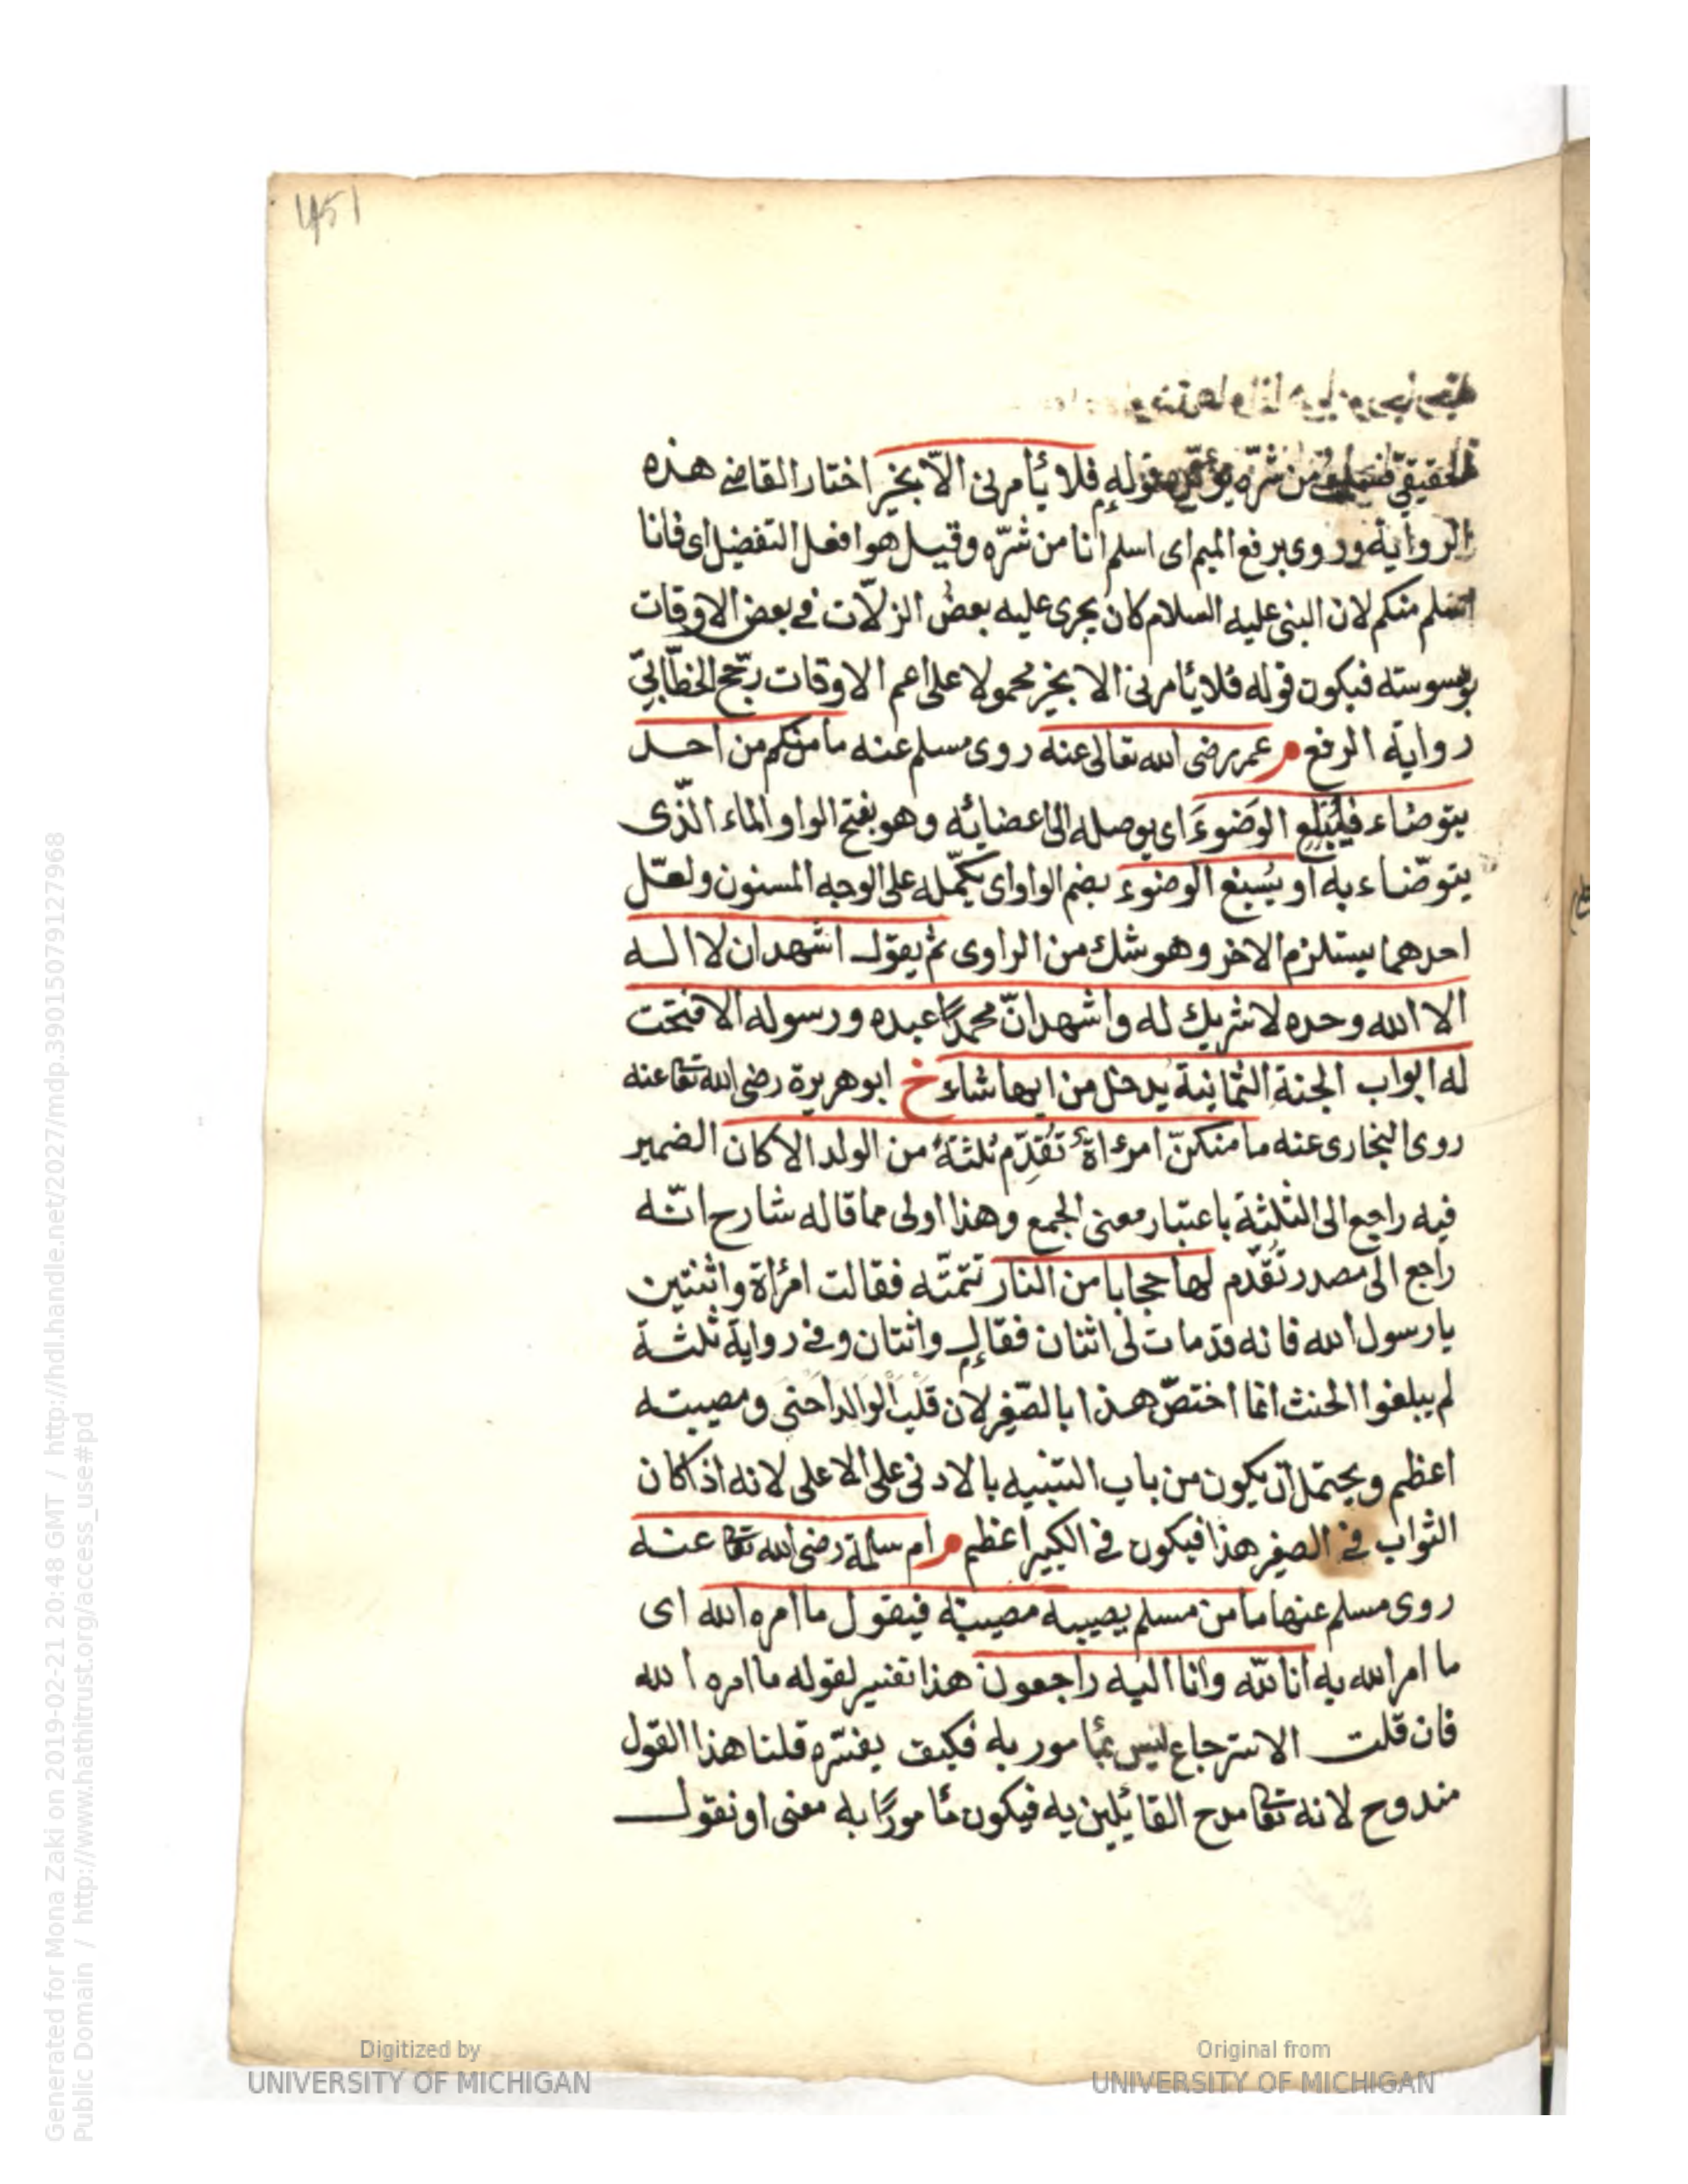 451
الحقيقي من شرّه قوله فلا يأمرنى الاّ بخير اختار القاضى هذه
الرواية وروى برفع الميم اى اسلم انا من شرّه وقيل هو افعل التفضيل اى فانا
اسلم منكم لان النبى عليه السلام كان يجرى عليه بعض الزلاّت فى بعض الاوقات
بوسوسته فيكون قوله فلا يأمرنى الا بخير محمولا على اعم الاوقات رجّح الخطّابىّ
رواية الرفع م عمر رضى الله تعالى عنه روى مسلم عنه ما منكم من احد
يتوضاء فيُبْلِغ الوَضوءَ اى يوصله الى اعضائه وهو بفتح الواو الماء الّذى
يتوضّاء به او يُسبغ الوضوء بضم الواو اى يكمّله على الوجه المسنون ولعلّ
احدهما يستلزم الاخر وهو شك من الراوى ثم يقول اشهد ان لا اله
الا الله وحده لا شريك له واشهد انّ محمدًا عبده ورسوله الا فتحت
له ابواب الجنة الثمانية يدخل من ايها شاء خ ابو هريرة رضى الله تعا عنه
روى البخارى عنه ما منكنّ امرءاةٌ تُقَدِّم ثلثةً من الولد الا كان الضمير
فيه راجع الى الثلثة باعتبار معنى الجمع وهذا اولى مما قاله شارح انّه
راجع الى مصدر تُقَدّم لها حجابا من النار تتمّته فقالت امرأة واثنتين
يا رسول الله فانه قد مات لى اثنان فقال واثنان وفى رواية ثلثة
لم يبلغوا الحنث انما اختصّ هذا بالصّغير لان قلب الوالد احنى ومصيبته
اعظم ويحتمل ان يكون من باب التنبيه بالادنى على الاعلى لانه اذا كان
الثواب فى الصغير هذا فيكون فى الكبير اعظم م ام سلمة رضى الله تعا عنه
روى مسلم عنها ما من مسلم يصيبه مصيبة فيقول ما امره الله اى
ما امر الله به انا لله وانا اليه راجعون هذا تفسير لقوله ما امره الله
فان قلت الاسترجاع ليس بمأمور به فكيف يفسّره قلنا هذا القول
مندوح لانه تعا مدح القائلين به فيكون مأمورًا به معنى او نقول
Digitized by
UNIVERSITY OF MICHIGAN
Original from
UNIVERSITY OF MICHIGAN
Generated for Mona Zaki on 2019-02-21 20:48 GMT / http://hdl.handle.net/2027/mdp.39015079127968
Public Domain / http://www.hathitrust.org/access_use#pd